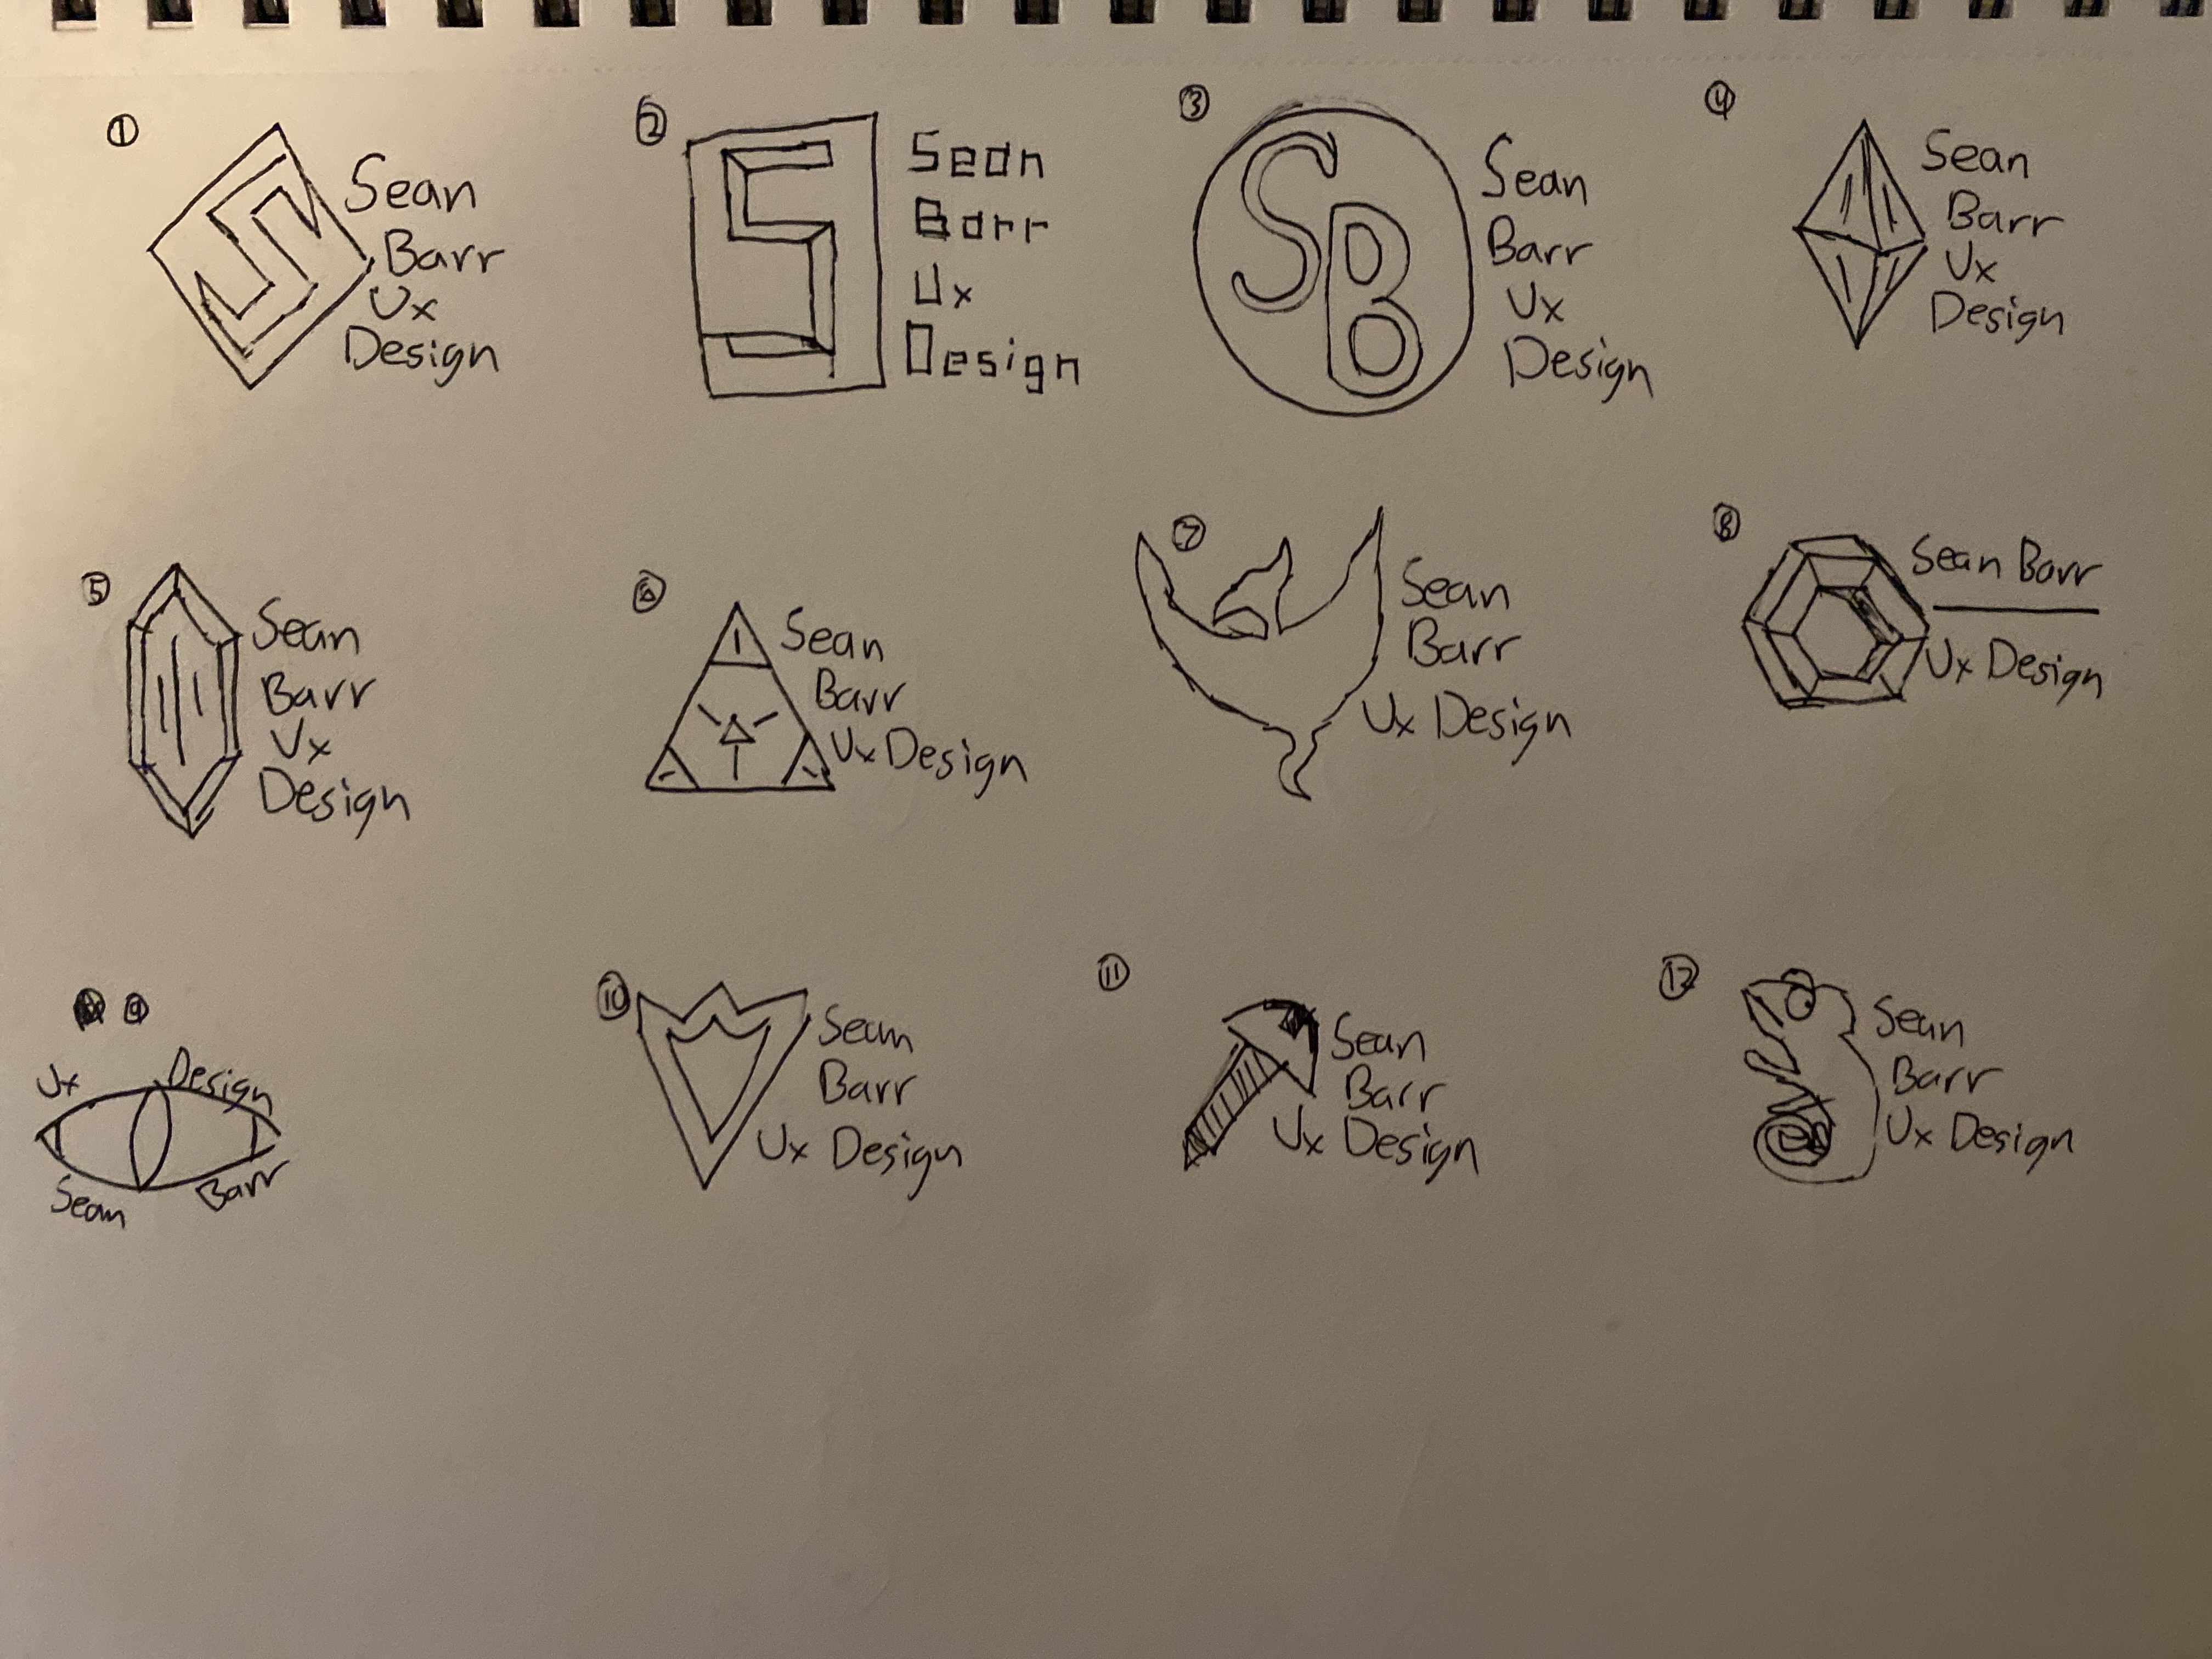 1
Sean
Barr
Ux
Design
2
Sean
Barr
Ux
Design
3
SB
Sean
Barr
Ux
Design
4
Sean
Barr
Ux
Design
5
Sean
Barr
Ux
Design
6
Sean
Barr
Ux Design
7
Sean
Barr
Ux Design
8
Sean Barr
Ux Design
9
Ux Design
Sean Barr
10
Sean
Barr
Ux Design
11
Sean
Barr
Ux Design
12
Sean
Barr
Ux Design